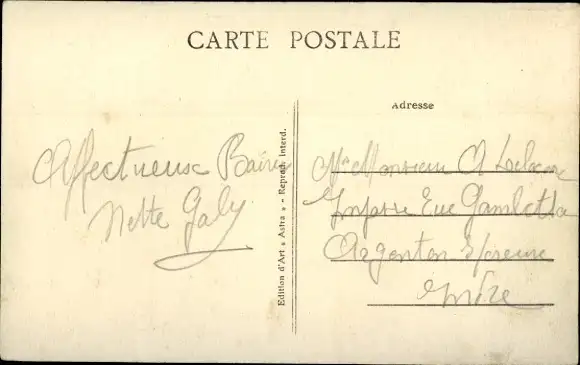 CARTE POSTALE
Adresse
Affectueux Baisers
Nette Galy
Edition d'Art « Astra » - Reprod. Interd.
Monsieur A
Impasse Rue Gambetta
Argenton s/creuse
Indre